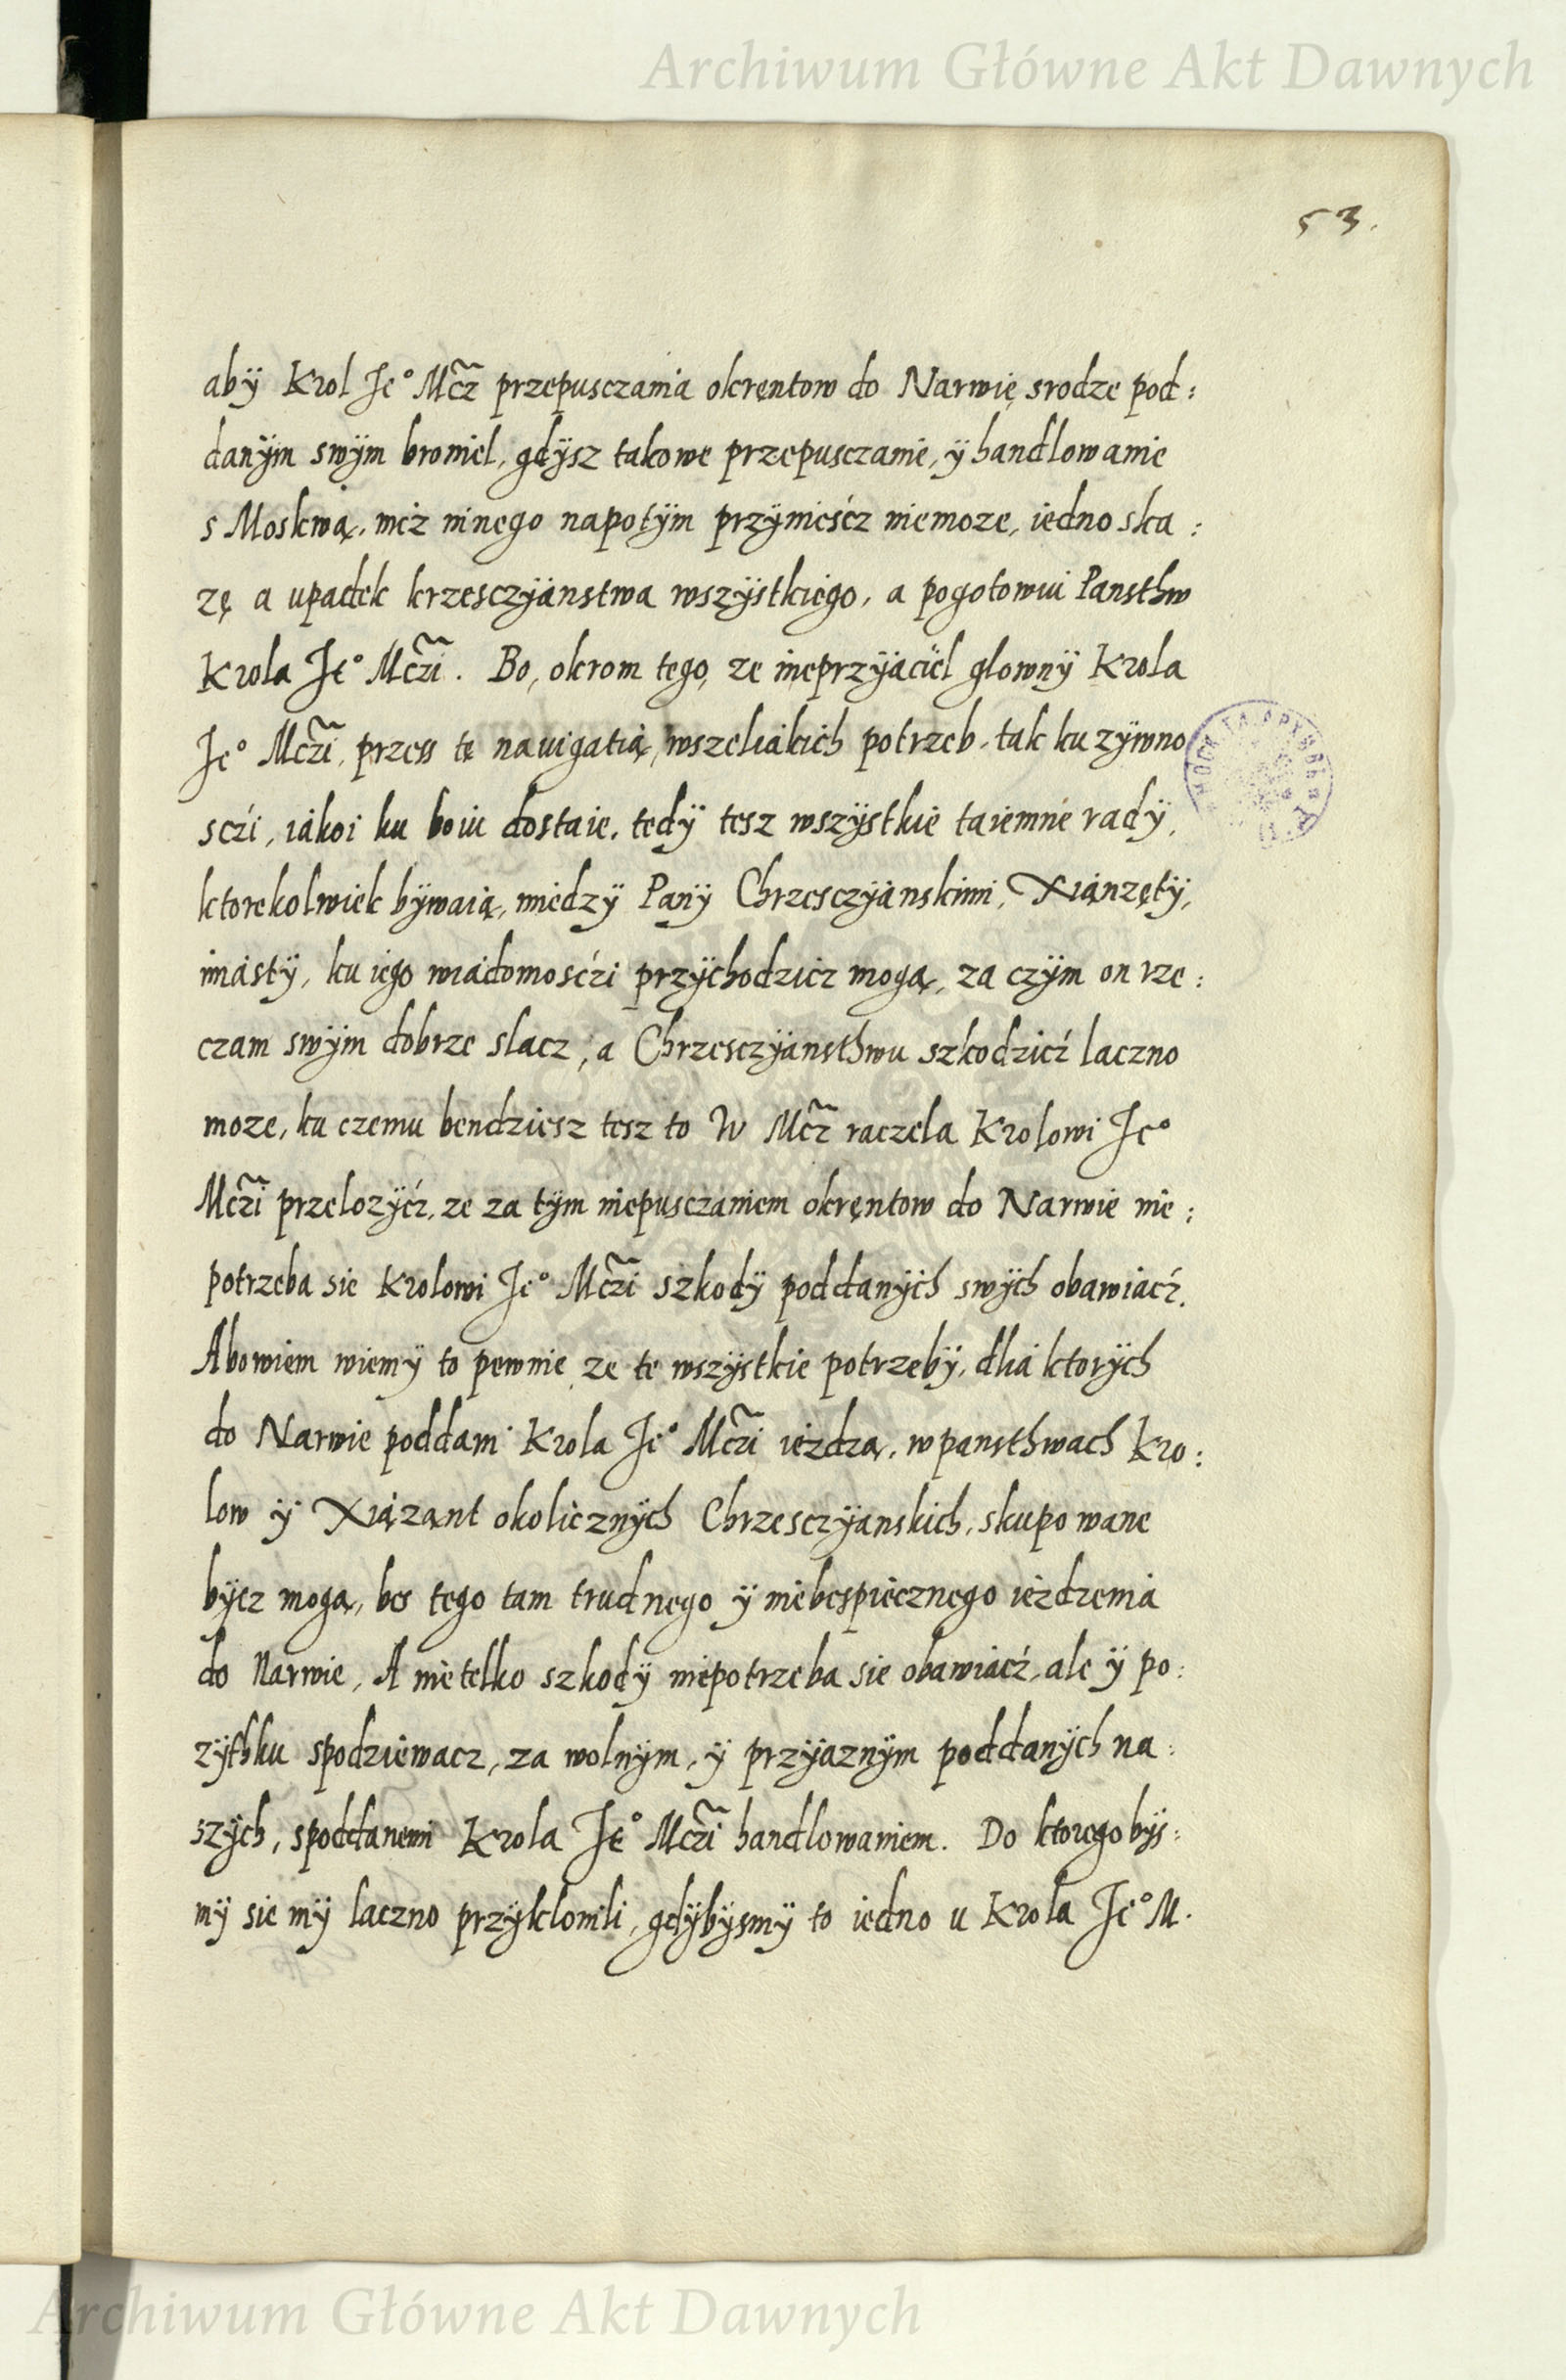 Archiwum Główne Akt Dawnych
53.
abÿ Krol Je° Mcz̃ przepusczania okrentow do Narwię srodze pod:
danÿm swÿm broniel, gdÿsz takowe przepusczanie, ÿ handlowanie
s Moskwą, niż ninego napotÿm przÿniesćz niemoze, iedno ska:
zę a upadek krzesczÿanstwa wszÿstkiego, a pogotowiu Pansthw
Krola Je° Mcz̃i. Bo, okrom tego, ze nieprzÿiaciel glownÿ Krola
Je° Mcz̃i, przess te nauigatią, wszeliakich potrzeb, tak ku zÿwno
sczi, iakoi ku boiu dostaie, tedÿ tesz wszÿstkie taiemne radÿ,
ktorekolwiek bÿwaią, miedzÿ Panÿ Chrzesczÿanskimi, Xiąnzętÿ,
miastÿ, ku iego wiadomosćzi przÿchodzicz mogą, za czÿm on rze:
czam swÿm dobrze slacz, a Chrzesczÿansthwu szkodzicź laczno
moze, ku czemu bendziesz tesz to W Mcz̃ raczela Krolowi Je°
Mcz̃i przelozÿćz, ze za tÿm niepusczaniem okrentow do Narwie nie:
potrzeba sie Krolowi Je° Mcz̃i szkodÿ poddanÿch swÿch obawiaćz.
Abowiem wiemÿ to pewnie ze te wszÿstkie potrzebÿ, dlia ktorÿch
do Narwie poddani Krola Je° Mcz̃i ieżdzą, w pansthwach Kro:
low ÿ Xiązant okolicznÿch Chrzesczÿanskich, skupowane
bÿcz mogą, bes tego tam trudnego ÿ niebespiecznego ieżdzenia
do Narwie, A nietelko szkodÿ niepotrzeba sie obawiaćź, ale ÿ po:
zÿthku spodziewacz, za wolnÿm, ÿ przÿiaznÿm poddanÿch na:
szÿch, spoddanemi Krola Je° Mcz̃i handlowaniem. Do ktoregobÿs:
mÿ sie mÿ laczno przÿklonili, gdÿbÿsmÿ to iedno u Krola Je° M.
Archiwum Główne Akt Dawnych